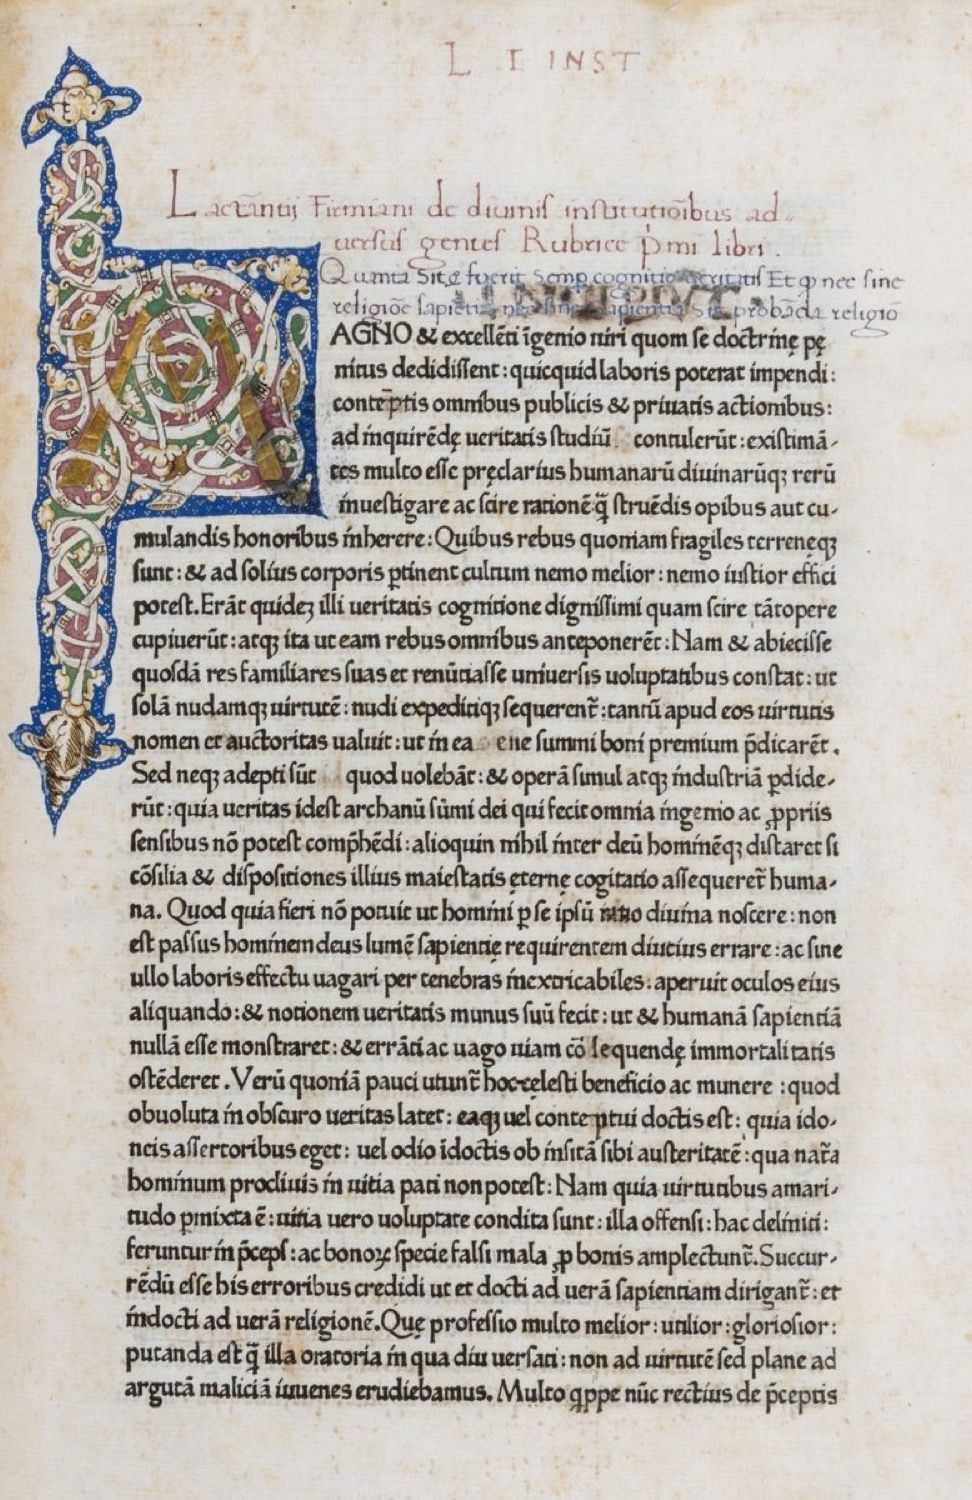 L . I INST
Lactantii Firmiani de diuinis institutiõibus ad-
uersus gentes Rubrice p̃mi libri .
Quanta Sit & fuerit Semp cognitio ueritatis Et ꝙ nec sine
religiõe sapientia nec sine sapientia Sit probãda religio
M
AGNO & excellẽti ĩgenio uiri quom se doctrinę pę
nitus dedidissent : quicquid laboris poterat impendi :
contẽptis omnibus publicis & priuatis actionibus :
ad inquirẽdę ueritatis studiũ contulerũt : existimã-
tes multo esse pręclarius humanarũ diuinarũqꝫ rerũ
inuestigare ac scire rationẽ q̃ struẽdis opibus aut cu-
mulandis honoribus inherere : Quibus rebus quoniam fragiles terreneqꝫ
sunt : & ad solius corporis ꝑtinent cultum nemo melior : nemo iustior effici
potest. Erãt quideꝫ illi ueritatis cognitione dignissimi quam scire tãtopere
cupiuerũt : atqꝫ ita ut eam rebus omnibus anteponerẽt : Nam & abiecisse
quosdã res familiares suas et renũtiasse uniuersis uoluptatibus constat : ut
solã nudamqꝫ uirtutẽ : nudi expeditiqꝫ sequerent̃ : tantũ apud eos uirtutis
nomen et auctoritas ualuit : ut in ea e ne summi boni premium p̃dicarẽt .
Sed neqꝫ adepti sũt quod uolebãt : & operã simul atqꝫ industriã ꝑdide-
rũt : quia ueritas idest archanũ sũmi dei qui fecit omnia ingenio ac ꝓpriis
sensibus nõ potest comp̃hẽdi : alioquin nihil inter deũ hominẽqꝫ distaret si
cõsilia & dispositiones illius maiestatis ęternę cogitatio assequeret̃ huma-
na. Quod quia fieri nõ potuit ut homini ꝑ se ipsũ ratio diuina noscere : non
est passus hominem deus lumẽ sapientię requirentem diutius errare : ac sine
ullo laboris effectu uagari per tenebras inextricabiles : aperuit oculos eius
aliquando : & notionem ueritatis munus suũ fecit : ut & humanã sapientiã
nullã esse monstraret : & errãti ac uago uiam cõ sequendę immortalitatis
ostẽderet . Verũ quoniã pauci utunt̃ hoc cęlesti beneficio ac munere : quod
obuoluta in obscuro ueritas latet : eaqꝫ uel conte ptui doctis est : quia ido-
neis assertoribus eget : uel odio ĩdoctis ob insitã sibi austeritatẽ : qua nat̃a
hominum procliuis in uitia pati non potest : Nam quia uirtutibus amari-
tudo ꝑmixta ẽ : uitia uero uoluptate condita sunt : illa offensi : hac deliniti :
feruntur in p̃ceps : ac bonoꝝ specie falsi mala ꝓ bonis amplectunt̃. Succur-
rẽdũ esse his erroribus credidi ut et docti ad uerã sapientiam dirigant̃ : et
indocti ad uerã religionẽ. Quę professio multo melior : utilior : gloriosior :
putanda est q̃ illa oratoria in qua diu uersati : non ad uirtutẽ sed plane ad
argutã maliciã iuuenes erudiebamus. Multo q̃ppe nũc rectius de p̃ceptis